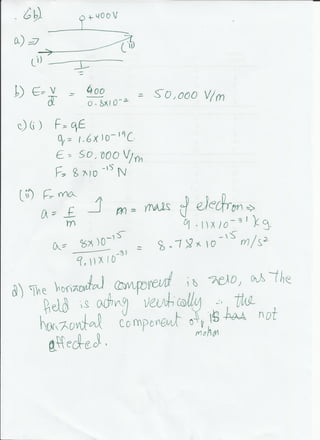 6b)
+400V
a) ⇒
(i)
(ii)
b) E = V/d = 400/0.8x10⁻² = 50,000 V/m
c)(i) F = qE
q = 1.6x10⁻¹⁹C
E = 50,000 V/m
F = 8x10⁻¹⁵ N
(ii) F = ma
a = F/m m = mass of electron ⇒
9.11x10⁻³¹ kg
a = 8x10⁻¹⁵/9.11x10⁻³¹ = 8.78x10⁻¹⁵ m/s²
d) The horizontal component is zero, as the
field is acting vertically ∴ the
horizontal component of motion is has not
affected.